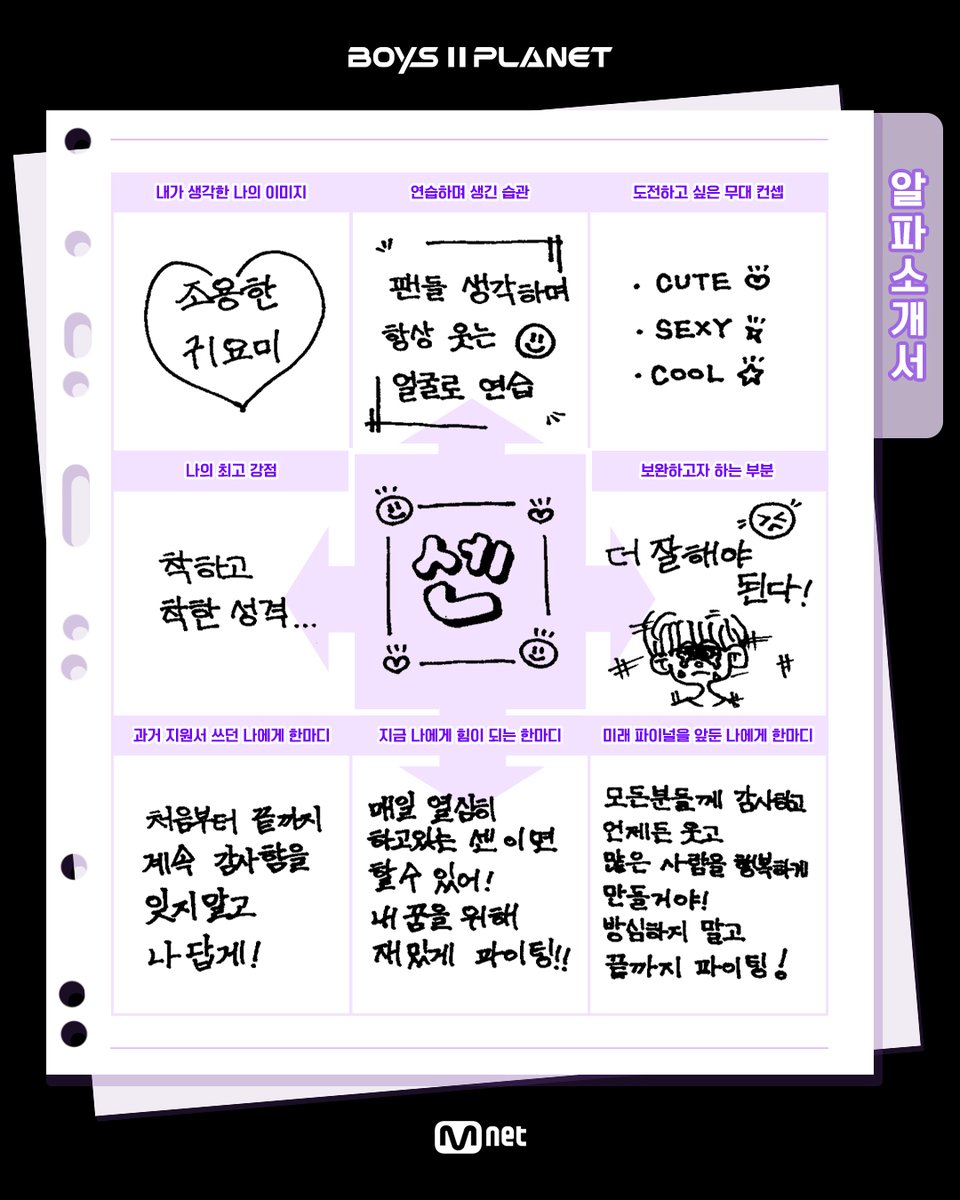 BOYS II PLANET
알파소개서
내가 생각한 나의 이미지
조용한
귀요미
연습하며 생긴 습관
팬들 생각하며
항상 웃는
얼굴로 연습
도전하고 싶은 무대 컨셉
· CUTE
· SEXY
· COOL
나의 최고 강점
착하고
착한 성격...
센
보완하고자 하는 부분
더 잘해야
된다!
과거 지원서 쓰던 나에게 한마디
처음부터 끝까지
계속 감사함을
잊지말고
나답게!
지금 나에게 힘이 되는 한마디
매일 열심히
하고있는 센이면
할수 있어!
내 꿈을 위해
재밌게 파이팅!!
미래 파이널을 앞둔 나에게 한마디
모든분들께 감사하고
언제든 웃고
많은 사람을 행복하게
만들거야!
방심하지 말고
끝까지 파이팅!
Mnet